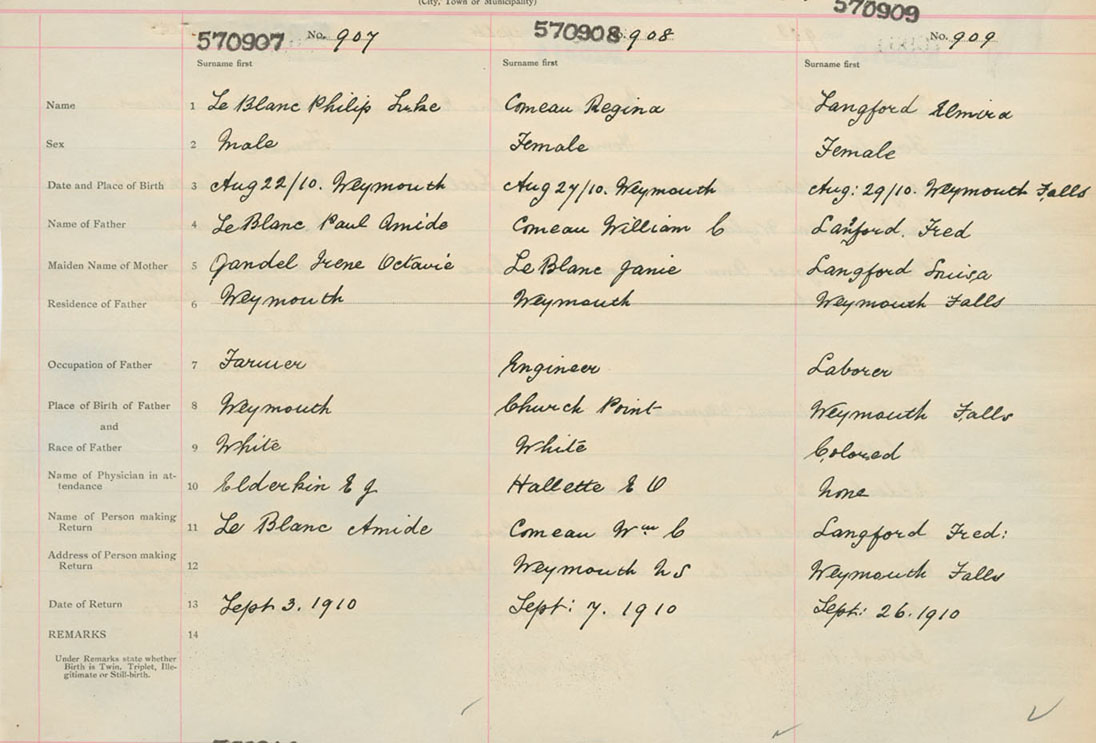 (City, Town or Municipality)
570907 No. 907 570908 908 570909 No. 909
Surname first Surname first Surname first
Name 1 Le Blanc Philip Luke Comeau Regina Langford Elmira
Sex 2 Male Female Female
Date and Place of Birth 3 Aug 22/10. Weymouth Aug 27/10. Weymouth Aug: 29/10. Weymouth Falls
Name of Father 4 Le Blanc Paul Amide Comeau William C Lanford. Fred
Maiden Name of Mother 5 Irene Octavie Le Blanc Janie Langford Louisa
Residence of Father 6 Weymouth Weymouth Weymouth Falls
Occupation of Father 7 Farmer Engineer Laborer
Place of Birth of Father 8 Weymouth Church Point Weymouth Falls
and
Race of Father 9 White White Colored
Name of Physician in at-
tendance 10 Elderkin E J Hallette E O None
Name of Person making
Return 11 Le Blanc Amide Comeau Wm C Langford Fred:
Address of Person making
Return 12 Weymouth NS Weymouth Falls
Date of Return 13 Sept 3. 1910 Sept: 7. 1910 Sept: 26. 1910
REMARKS 14
Under Remarks state whether
Birth is Twin, Triplet, Ille-
gitimate or Still-birth.